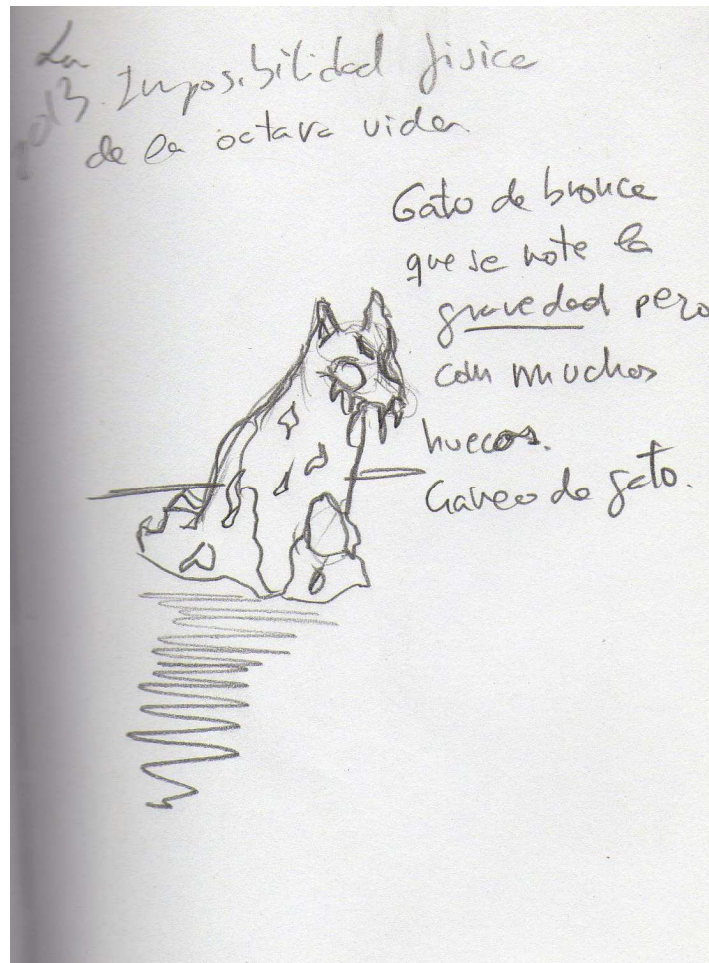 La
Imposibilidad fisica
de la octava vida
Gato de bronce
que se note la
gravedad pero
con muchos
huecos.
de gato.